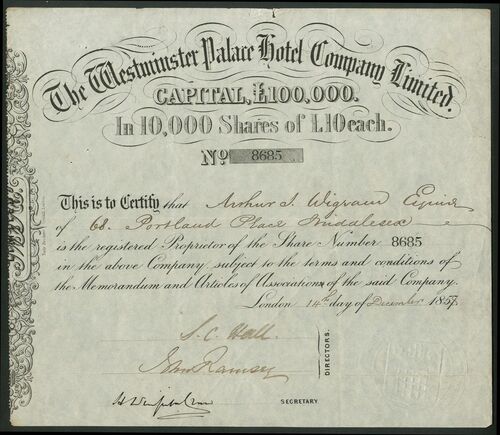 The Westminster Palace Hotel Company Limited.
CAPITAL, £100,000.
In 10,000 Shares of £10 each.
No 8685
This is to Certify that Arthur J. Wigram Esquire
of 68. Portland Place Middlesex
is the registered Proprietor of the Share Number 8685
in the above Company subject to the terms and conditions of
the Memorandum and Articles of Association of the said Company.
London 14th day of December 1857.
S. C. Hall
John Ramsey
DIRECTORS.
SECRETARY